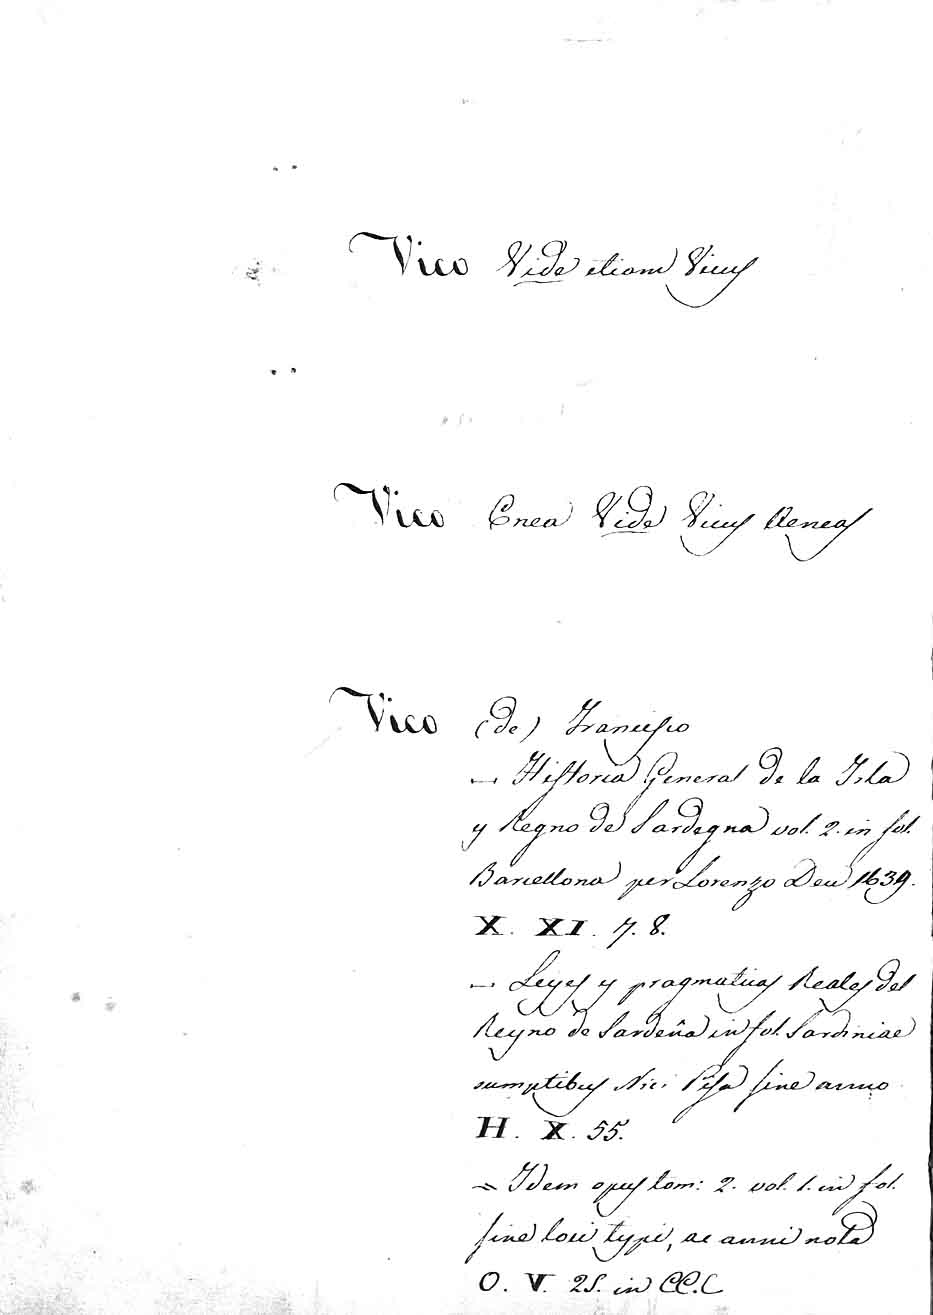 Vico Vide etiam Vicus
Vico Enea Vide Vicus Aeneas
Vico (de) Francisco
— Historia General de la Isla
y Regno de Sardegna vol. 2. in fol.
Barcellona per Lorenzo Deu 1639.
X. XI. 7. 8.
— Leyes y pragmaticas Reales del
Reyno de Sardeña in fol. Sardiniae
sumptibus Nic: Pisa sine anno
H. X. 55.
= Idem opus tom: 2. vol. 1. in fol.
sine loci typi, ac anni nota
O. V. 25. in CC.C